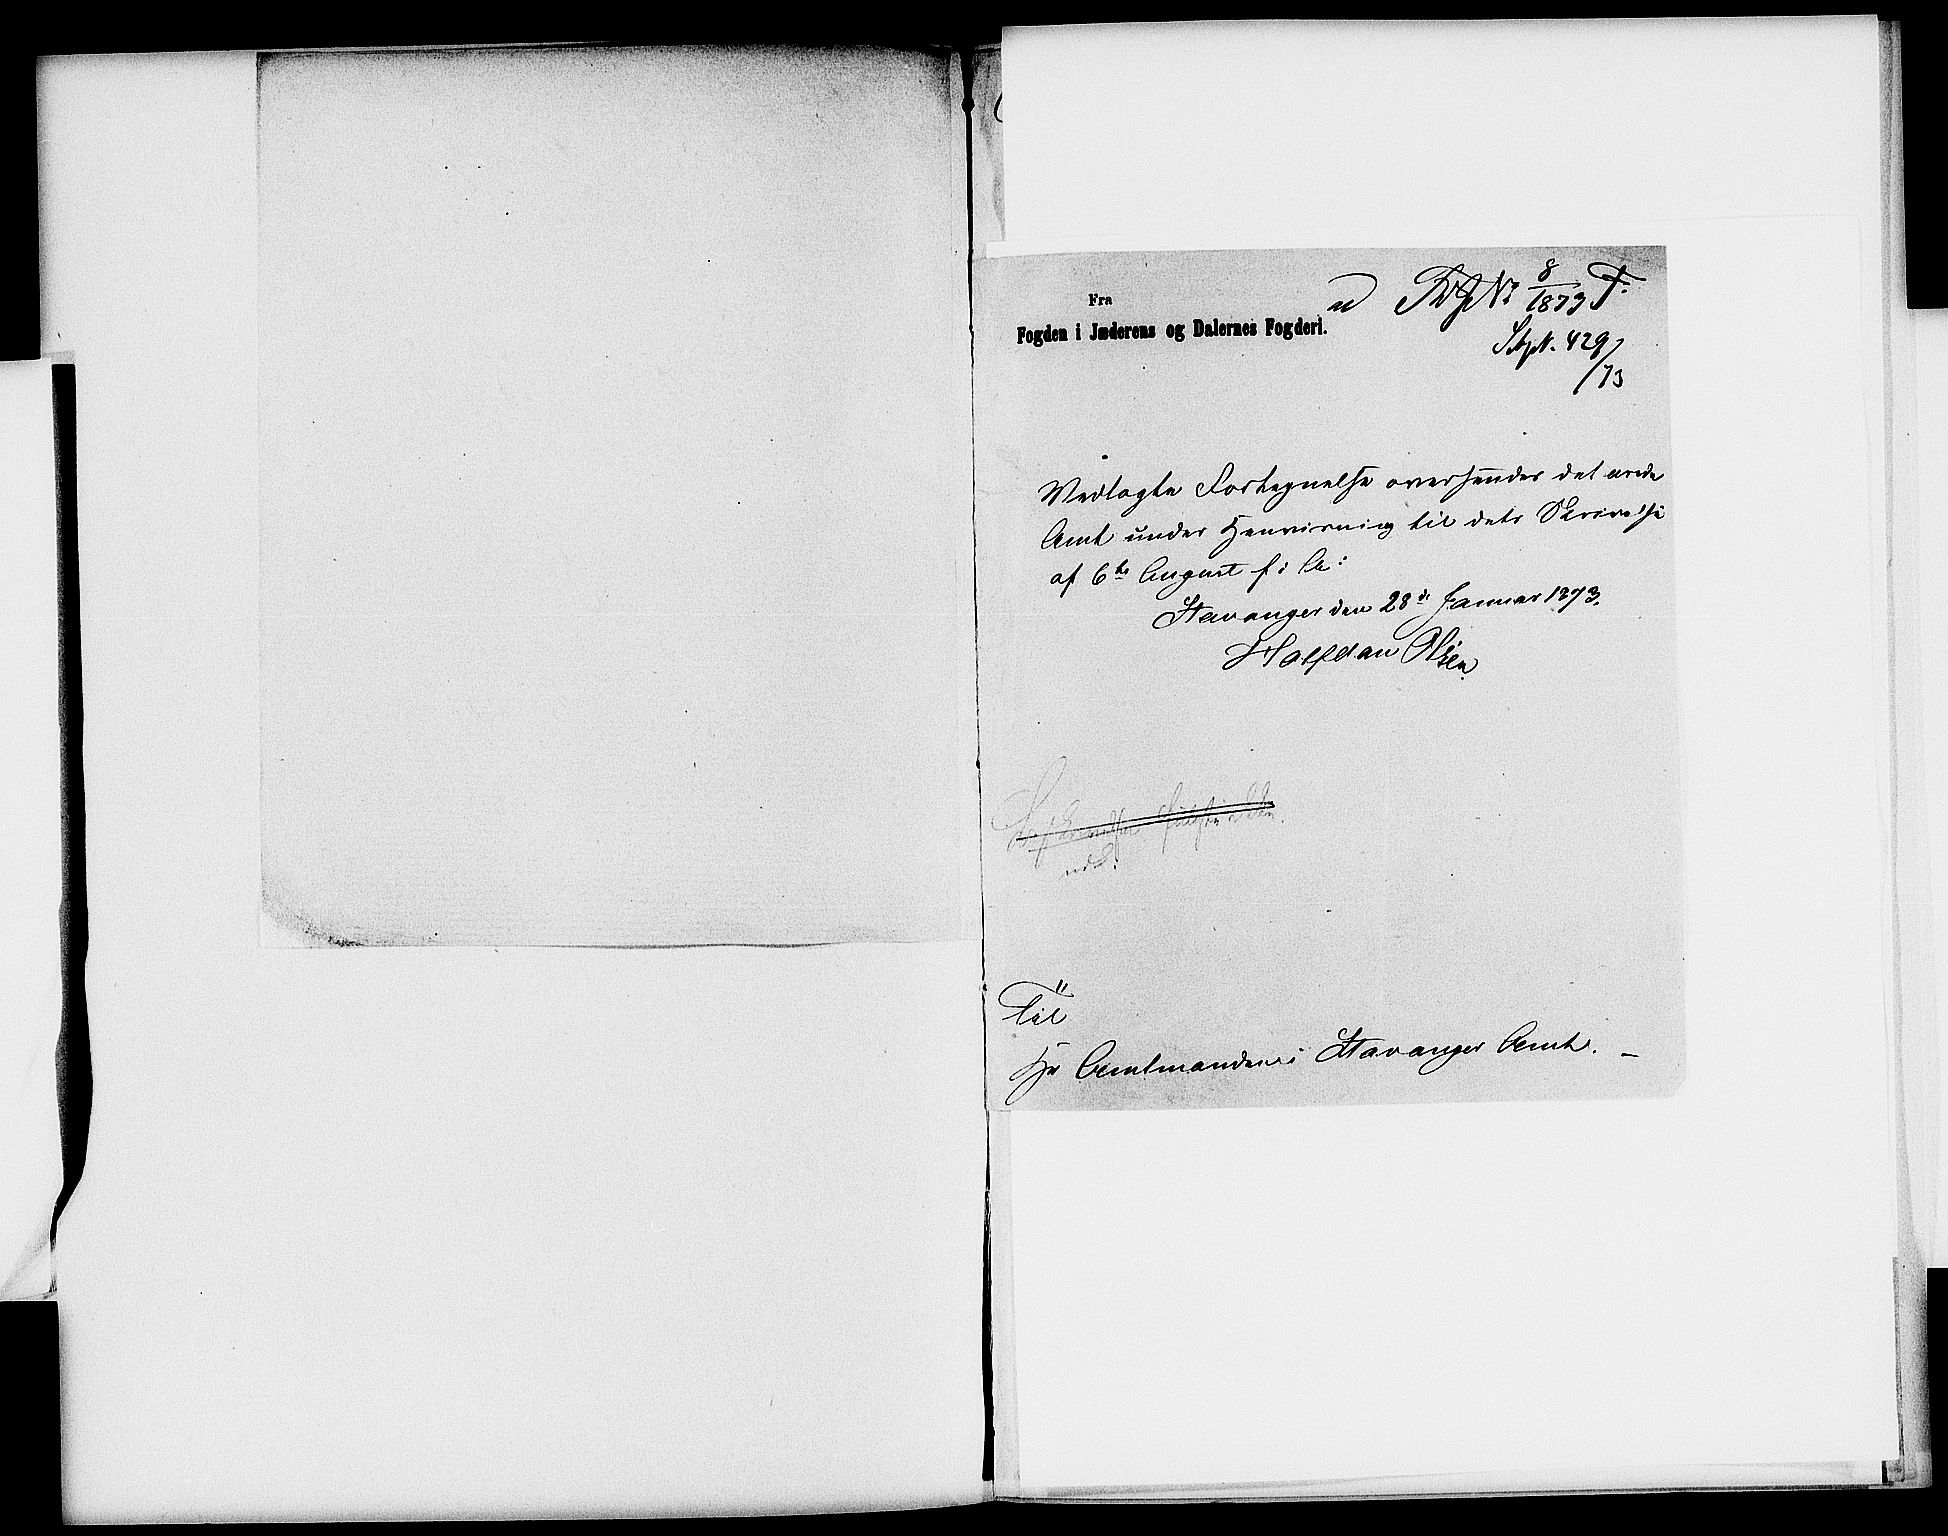 ad Kop No 8/1873 F.
Fra
Fogden i Jæderens og Dalernes Fogderi.
429/73
Vedlagte Fortegnelse oversendes det ærede
Amt under Henvisning til dets Skrivelse
af 6te August f: A:
Stavanger den 28de Januar 1873.
Halfdan Olsen
Til
Hr Amtmanden i Stavanger Amt. –